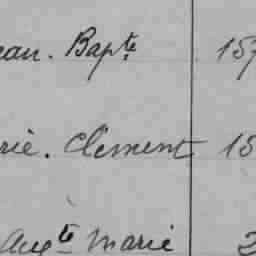 ean. Bapte 157
rie. Clément 15
Augte Marie 2